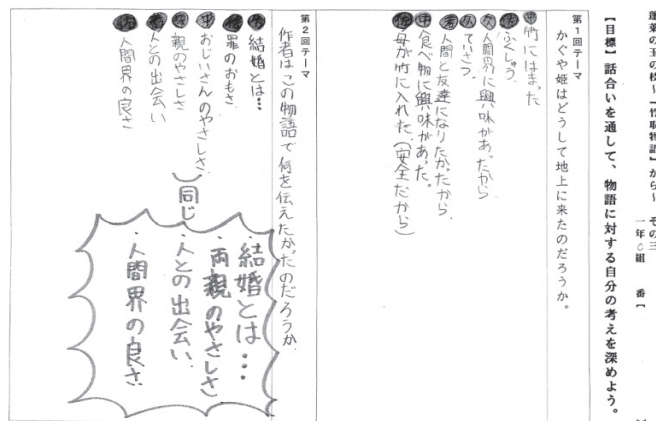 蓬莱の玉の枝～「竹取物語」から～　その三
一年C組　　番【　　　】
【目標】話合いを通して、物語に対する自分の考えを深めよう。
第1回テーマ
かぐや姫はどうして地上に来たのだろうか。
竹にはまった
ふくしゅう
人間界に興味があったから
ていさつ
人間と友達になりたかったから
食べ物に興味があった。
母が竹に入れた。(安全だから)
第2回テーマ
作者はこの物語で何を伝えたかったのだろうか。
結婚とは…
罪のおもさ
おじいさんのやさしさ
親のやさしさ
同じ
人との出会い
人間界の良さ
・結婚とは…
・両親のやさしさ
・人との出会い
・人間界の良さ